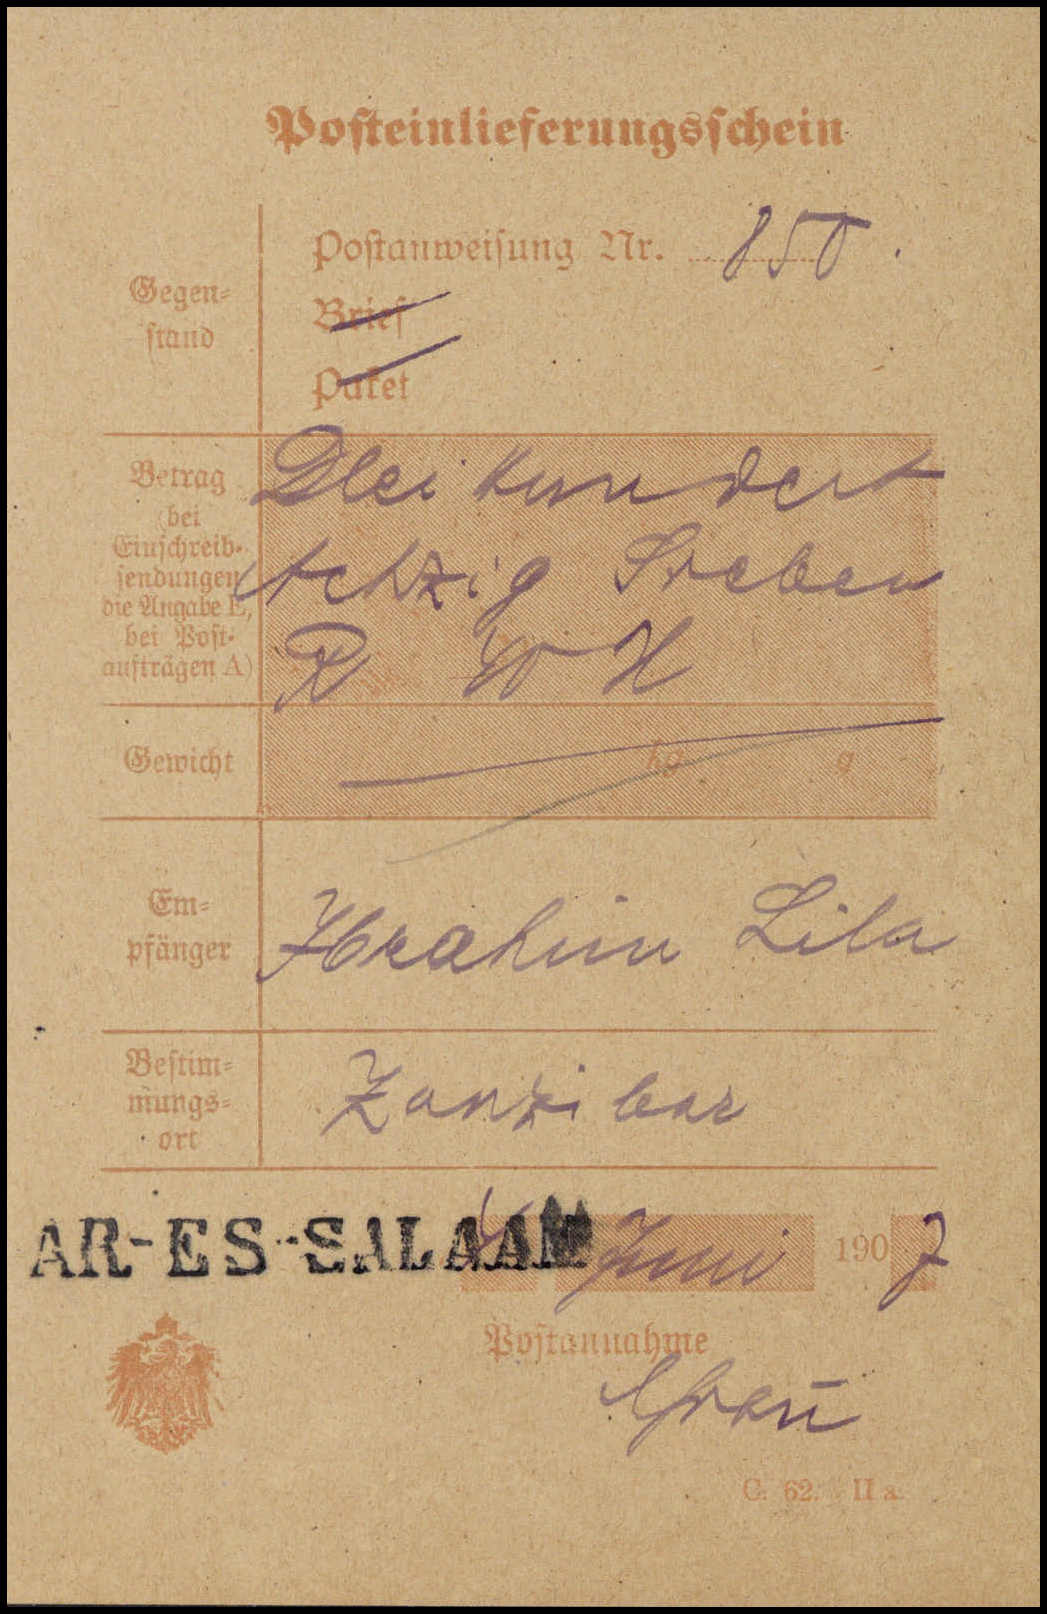 Posteinlieferungsschein
Gegen-
stand
Postanweisung Nr. 850.
Brief
Paket
Betrag
(bei
Einschreib-
sendungen
die Angabe E,
bei Post-
aufträgen A)
Drei hundert
Achzig Sieben
R W H
Gewicht
kg g
Em-
pfänger
Ibrahim Lila
Bestim-
mungs-
ort
Zanzibar
AR-ES-SALAAM
Juni 1907
Postannahme
C. 62. II a.